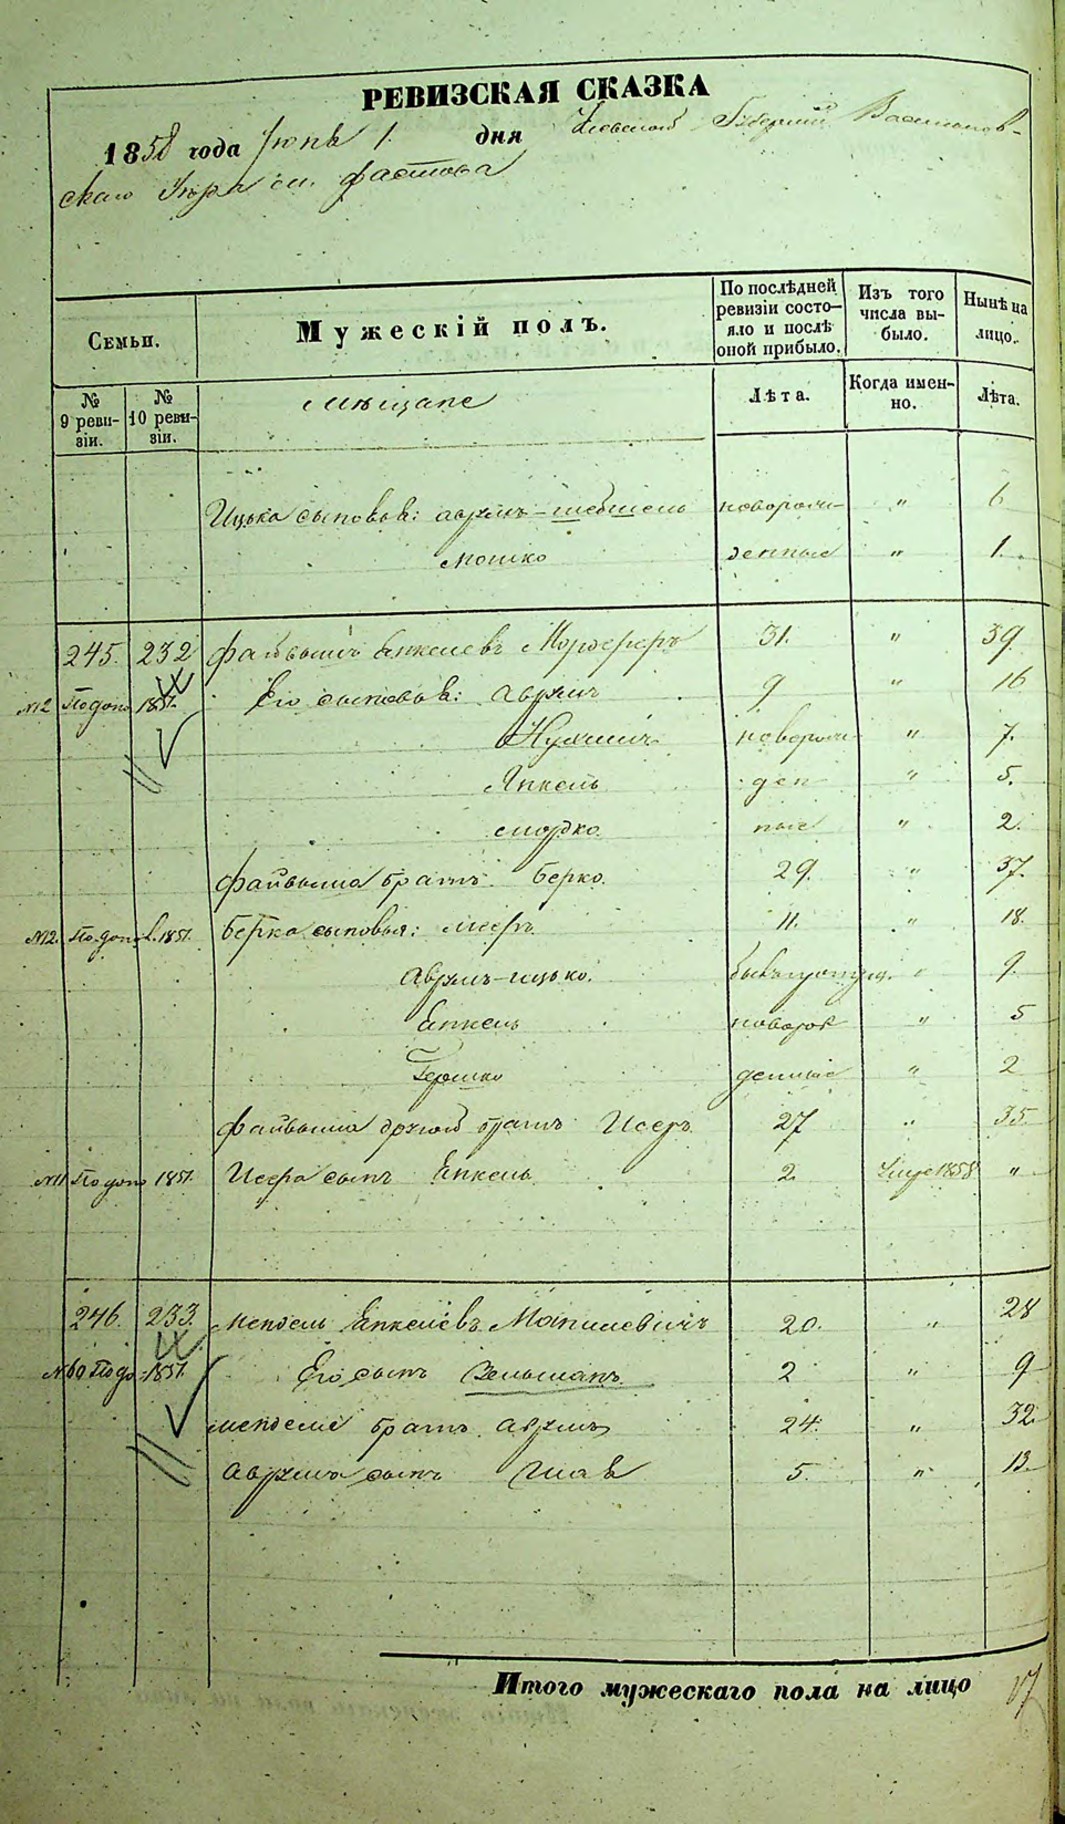 РЕВИЗСКАЯ СКАЗКА
1858 года Іюня 1. дня Кіевской Губерніи Васильков-
скаго Уѣзда м. Фастова
Семьи. Мужескій полъ. По послѣдней ревизіи состо-яло и послѣ оной прибыло. Изъ того числа вы-было. Нынѣ на лицо.
№ 9 реви-зіи. № 10 реви-зіи. Мѣщане Лѣта. Когда имен-но. Лѣта.
Ицька сыновья: Аврумъ-Шевшель новорож- " 6
Мошко денные " 1.
245. 232 Файвышъ Янкелевъ 31. " 39.
№12 По допо 1851. Его сыновья: Аврумъ 9 " 16
Нухимъ новорож- " 7.
Янкель ден " 5.
Мордко ные " 2.
Файвыша братъ Берко. 29. " 37.
№12. По допол. 1851. Берка сыновья: Мееръ 11. " 18.
Аврумъ-Ицько. " 9.
Янкель новорож " 5
Гершко денные " 2
Файвыша другой братъ Исеръ 27 " 35.
№11 По допо 1851. Исера сынъ Янкель 2. 1858 "
246. 233. Мендель Янкелевъ 20. " 28
№60 По до 1851. Его сынъ Зельманъ 2 " 9
Менделя братъ Аврумъ 24. " 32.
Аврума сынъ 5. " 13.
Итого мужескаго пола на лицо 17